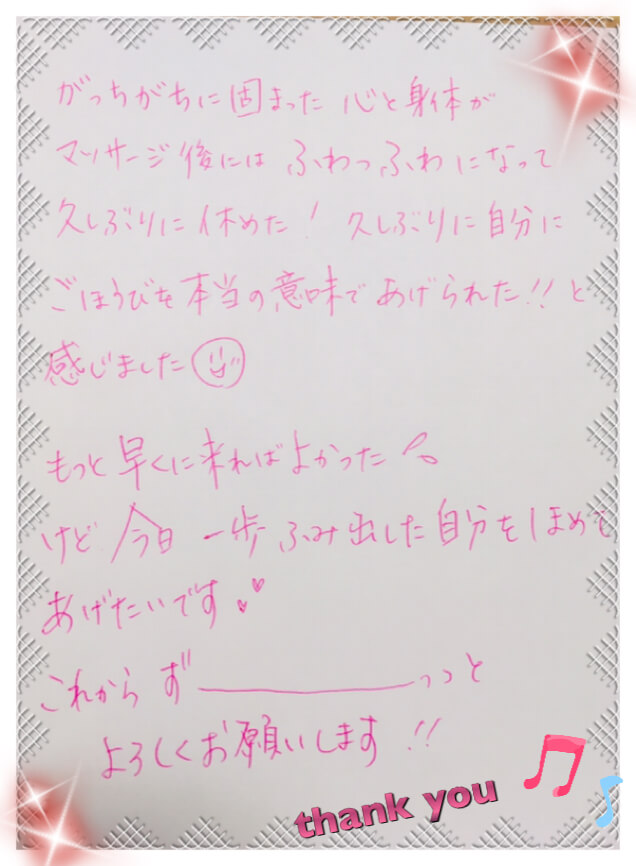 がっちがちに固まった 心と身体が
マッサージ後には ふわっふわ になって
久しぶりに 休めた! 久しぶりに自分に
ごほうびを本当の意味であげられた!! と
感じました
もっと早くに来ればよかった
けど 今日 一歩 ふみ出した 自分をほめて
あげたいです
これから ず―――っっと
よろしくお願いします!!
thank you